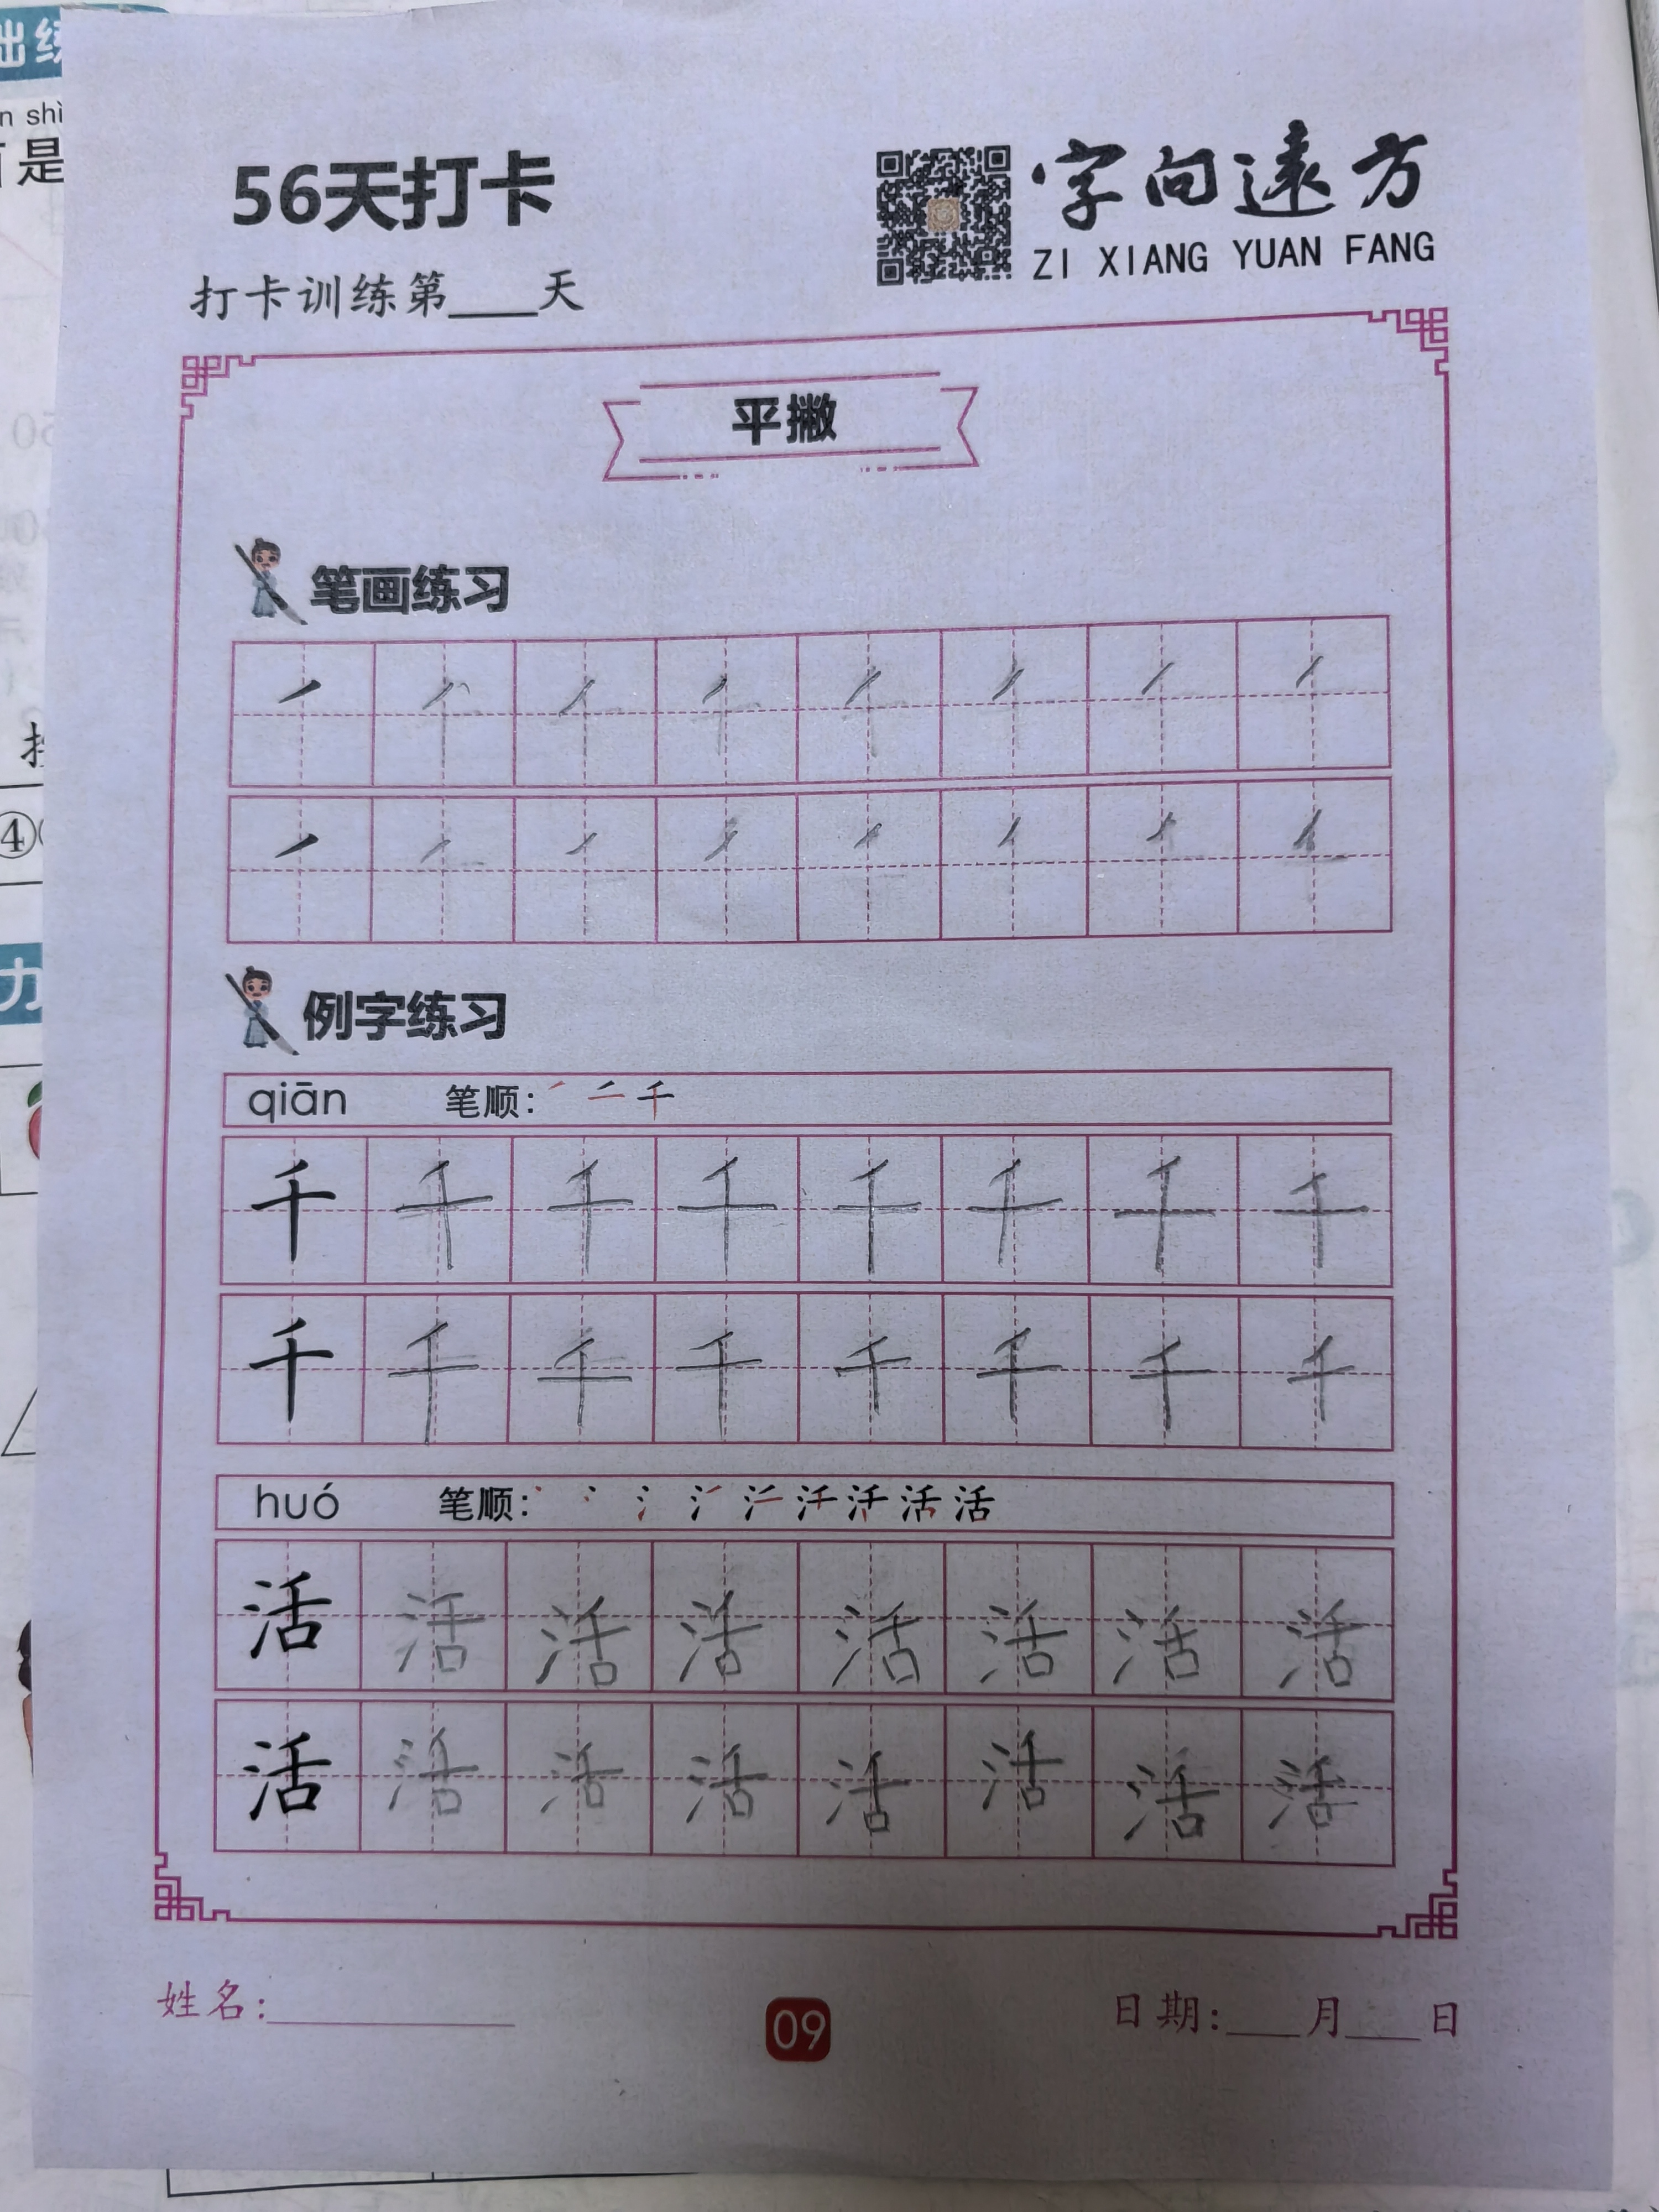 56天打卡
字向遠方
ZI XIANG YUAN FANG
打卡训练第____天
平撇
笔画练习
例字练习
qiān 笔顺: 千
千 千 千 千 千 千 千 千
千 千 千 千 千 千 千 千
huó 笔顺: 活
活 活 活 活 活 活 活 活
活 活 活 活 活 活 活 活
姓名:
09
日期:___月___日
n shì
是
④
力